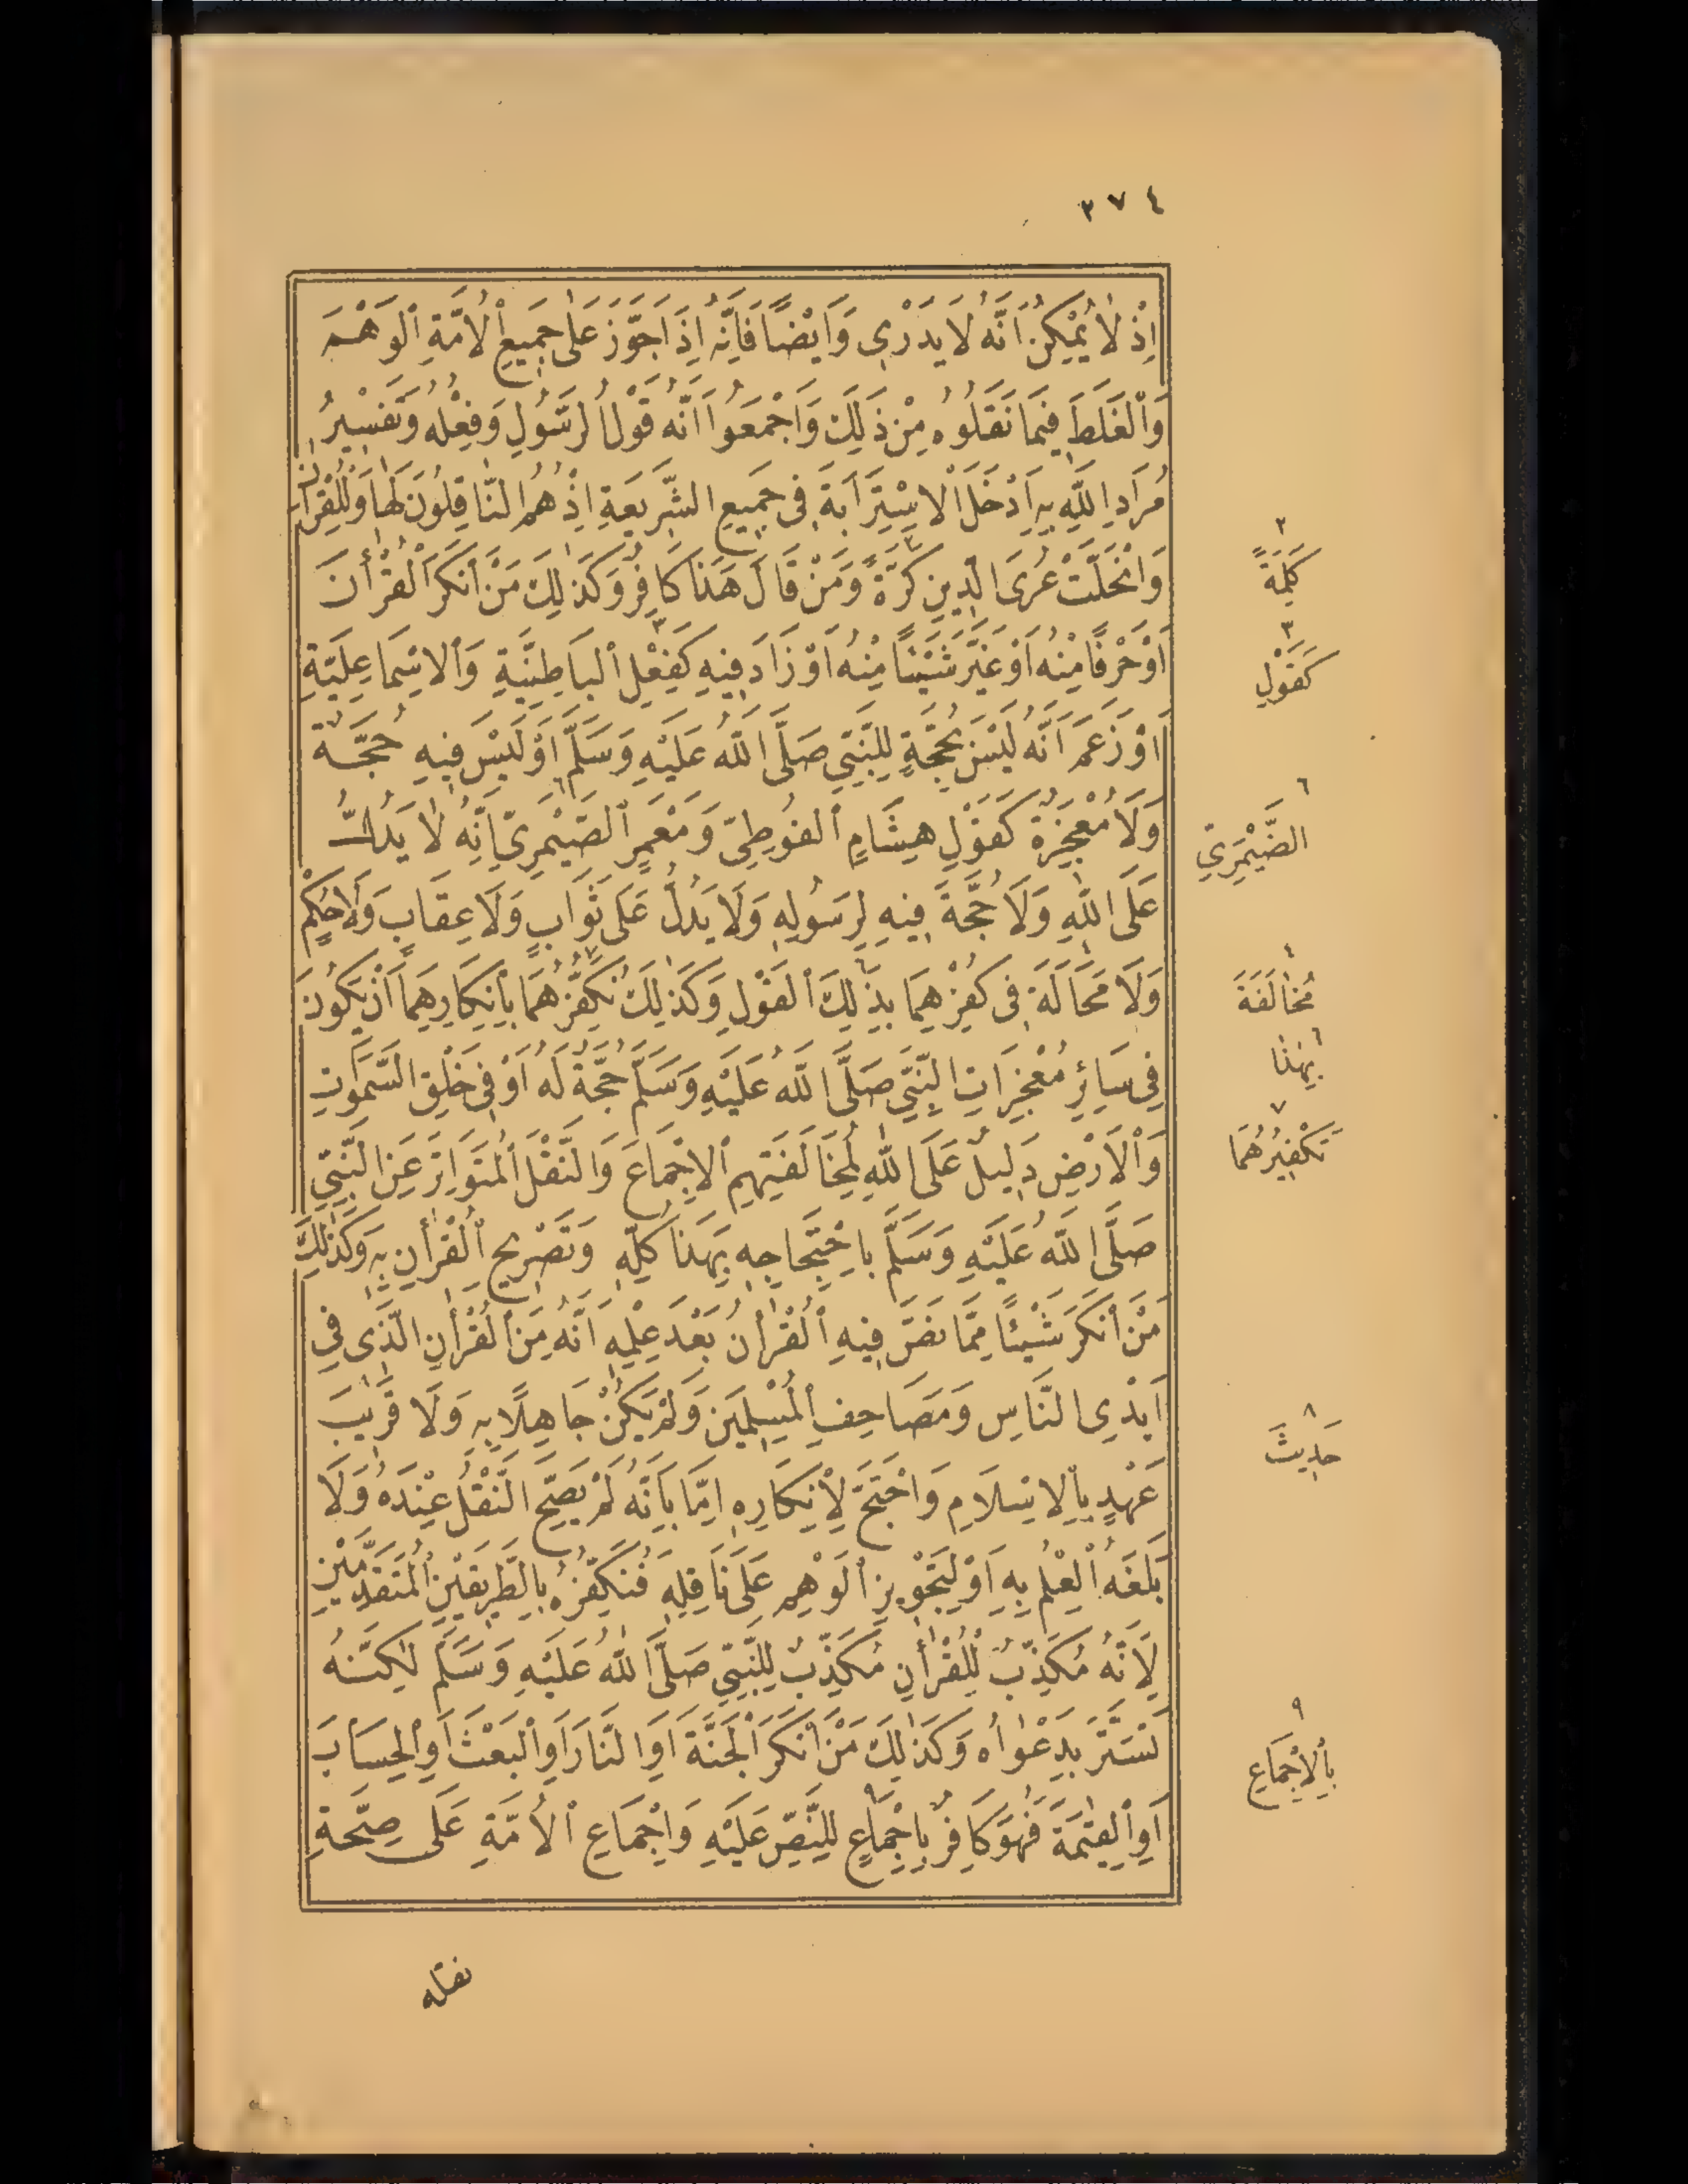 ٣٧٤
اِذْ لَا يُمْكِنُ اَنَّهُ لَا يَدْرِى وَاَيْضًا فَاِنَّهُ اِذَا جَوَّزَ عَلَى جَمِيعِ الْاُمَّةِ الْوَهْمَ
وَالْغَلَطَ فِيمَا نَقَلُوهُ مِنْ ذَلِكَ وَاَجْمَعُوا اَنَّهُ قَوْلُ الرَّسُولِ وَفِعْلُهُ وَتَفْسِيرُ
مُرَادِ اللّٰهِ بِهِ اَدْخَلَ الْاِسْتِرَابَةَ فِى جَمِيعِ الشَّرِيعَةِ اِذْ هُمُ النَّاقِلُونَ لَهَا وَلِلْقُرْاٰنِ
وَانْحَلَّتْ عُرَى الدِّينِ كَرَّةً٢ وَمَنْ قَالَ هَذَا كَافِرٌ وَكَذٰلِكَ مَنْ اَنْكَرَ الْقُرْاٰنَ
اَوْ حَرْفًا مِنْهُ اَوْ غَيَّرَ شَيْئًا مِنْهُ اَوْ زَادَ فِيهِ كَفِعْلِ٣ الْبَاطِنِيَّةِ وَالْاِسْمَاعِيلِيَّةِ
اَوْ زَعَمَ اَنَّهُ لَيْسَ بِحُجَّةٍ لِلنَّبِيِّ صَلَّى اللّٰهُ عَلَيْهِ وَسَلَّمَ اَوْ لَيْسَ فِيهِ حُجَّةٌ
وَلَا مُعْجِزَةٌ كَقَوْلِ هِشَامٍ الْفُوَطِىِّ وَمَعْمَرٍ الصَّيْمَرِىِّ٦ اِنَّهُ لَا يَدُلُّ
عَلَى اللّٰهِ وَلَا حُجَّةَ فِيهِ لِرَسُولِهِ وَلَا يَدُلُّ عَلَى ثَوَابٍ وَلَا عِقَابٍ وَلَا حُكْمٍ
وَلَا مَحَالَةَ٤ فِى كُفْرِهِمَا بِذَلِكَ٦ الْقَوْلِ وَكَذٰلِكَ نُكَفِّرُهُمَا٧ بِاِنْكَارِهِمَا اَنْ يَكُونَ
فِى سَائِرِ مُعْجِزَاتِ النَّبِيِّ صَلَّى اللّٰهُ عَلَيْهِ وَسَلَّمَ حُجَّةٌ لَهُ اَوْ فِى خَلْقِ السَّمٰوَاتِ
وَالْاَرْضِ دَلِيلٌ عَلَى اللّٰهِ لِمُخَالَفَتِهِمُ الْاِجْمَاعَ وَالنَّقْلَ الْمُتَوَاتِرَ عَنِ النَّبِيِّ
صَلَّى اللّٰهُ عَلَيْهِ وَسَلَّمَ بِاحْتِجَاجِهِ بِهَذَا كُلِّهِ وَتَصْرِيحِ الْقُرْاٰنِ بِهِ وَكَذٰلِكَ
مَنْ اَنْكَرَ شَيْئًا مِمَّا نَصَّ فِيهِ الْقُرْاٰنُ بَعْدَ عِلْمِهِ اَنَّهُ مِنَ الْقُرْاٰنِ الَّذِى فِى
اَيْدِى النَّاسِ وَمَصَاحِفِ الْمُسْلِمِينَ وَلَمْ يَكُنْ جَاهِلًا بِهِ وَلَا قَرِيبَ٨
عَهْدٍ بِالْاِسْلَامِ وَاحْتَجَّ لِاِنْكَارِهِ اِمَّا بِاَنَّهُ لَمْ يَصِحَّ النَّقْلُ عِنْدَهُ وَلَا
بَلَغَهُ الْعِلْمُ بِهِ اَوْ لِتَجْوِيزِ الْوَهْمِ عَلَى نَاقِلِهِ فَنُكَفِّرُهُ بِالطَّرِيقَيْنِ الْمُتَقَدِّمَيْنِ
لِاَنَّهُ مُكَذِّبٌ لِلْقُرْاٰنِ مُكَذِّبٌ لِلنَّبِيِّ صَلَّى اللّٰهُ عَلَيْهِ وَسَلَّمَ لٰكِنَّهُ
تَسَتَّرَ بِدَعْوَاهُ وَكَذٰلِكَ مَنْ اَنْكَرَ الْجَنَّةَ اَوِ النَّارَ اَوِ الْبَعْثَ اَوِ الْحِسَابَ
اَوِ الْقِيٰمَةَ فَهُوَ كَافِرٌ بِاِجْمَاعٍ٩ لِلنَّصِّ عَلَيْهِ وَاِجْمَاعِ الْاُمَّةِ عَلَى صِحَّةِ
نقله
٢
كَلِمَةً
٣
كَقَوْلِ
٦
الضَّيْمَرِيِّ
٤
مُخَالَفَةَ
٦
بِهٰذَا
٧
تَكْفِيرُهُمَا
٨
حَدِيثَ
٩
بِالْاِجْمَاعِ